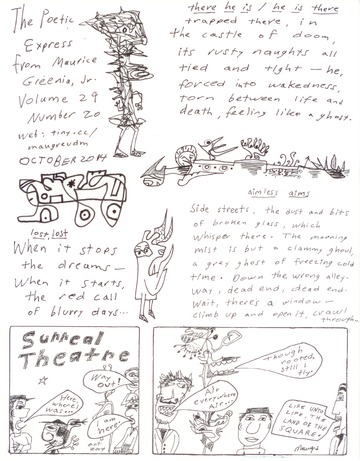 The Poetic
Express
from Maurice
Greenia, Jr.
Volume 29
Number 20
web: tiny.cc/
maugreudm
OCTOBER 2014
there he is / he is there
trapped there, in
the castle of doom,
its rusty naughts all
tied and tight — he,
forced into wakedness,
torn between life and
death, feeling like a ghost.
lost, lost
When it stops
the dreams —
When it starts,
the red call
of blurry days...
aimless aims
Side streets, the dust and bits
of broken glass, which
whisper there. The morning
mist is but a clammy ghoul,
a grey ghost of freezing cold
time. Down the wrong alley-
way, dead end, dead end.
Wait, there's a window —
climb up and open it, crawl
through
Surreal
Theatre
Way
out!
Here,
where's
was...
I am
here.
Though
rooted,
still I
fly.
Ale
everywhere
Ale.
LIFE UNTO
LIFE, THE
LAND OF THE
SQUARE.
Maugre